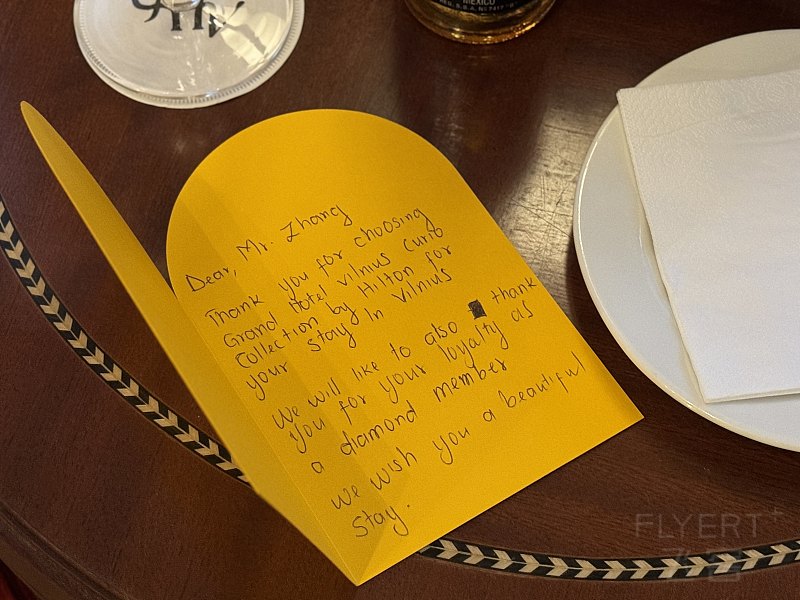 MEXICO
Dear, Mr. Zhang
Thank you for choosing
Grand Hotel Vilnius Curio
Collection by Hilton for
your stay in Vilnius
We will like to also thank
you for your loyalty as
a diamond member
we wish you a beautiful
stay.
FLYERT+